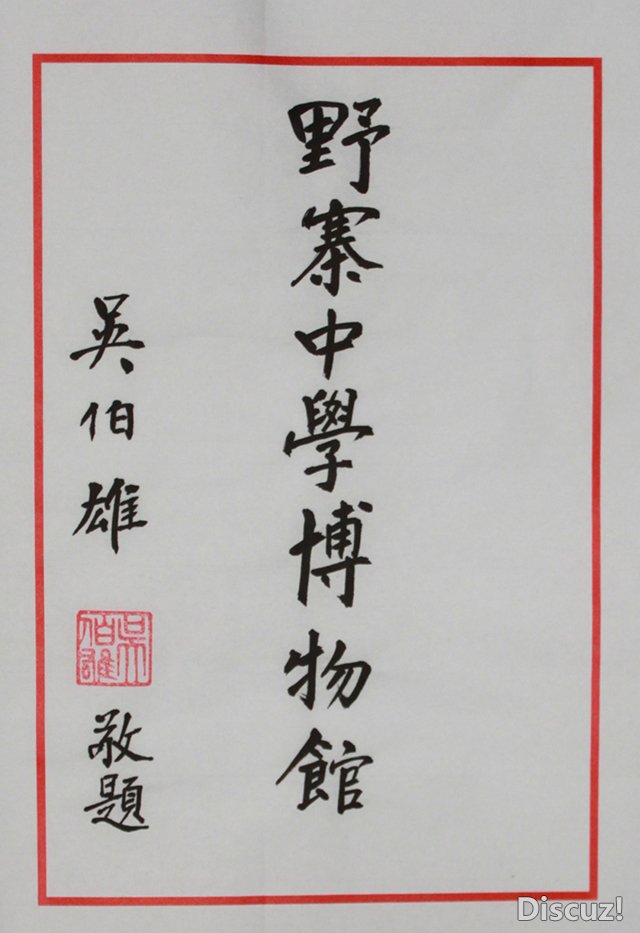 野寨中學博物館
吳伯雄
吳伯雄
敬題
Discuz!